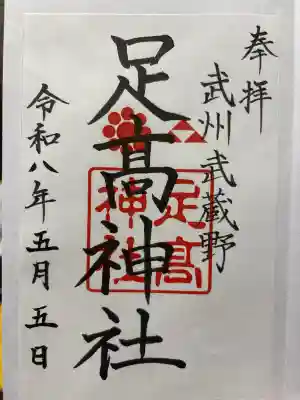 奉拝
武州武蔵野
足高神社
足高神社
令和八年五月五日